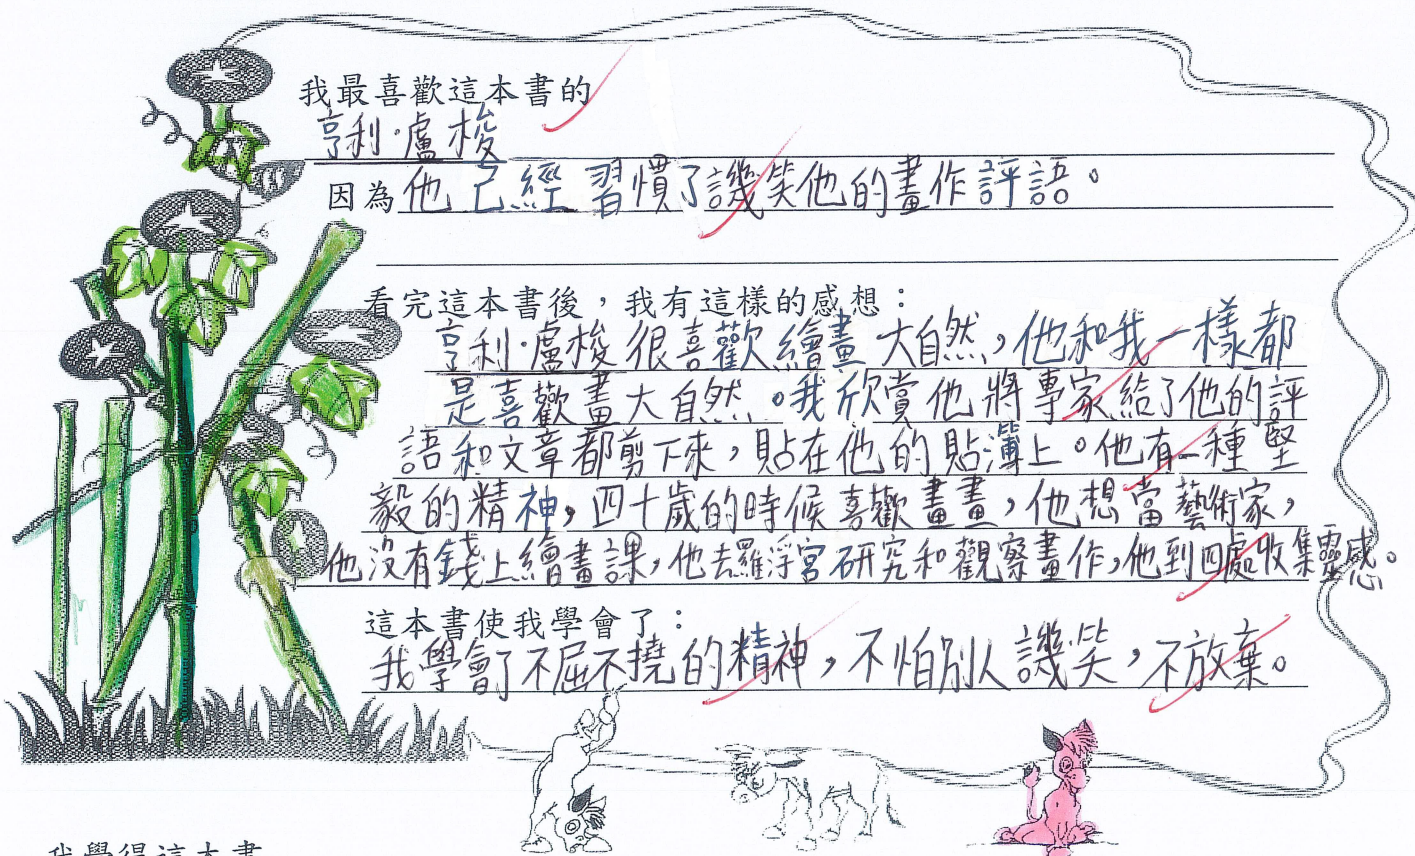 我最喜歡這本書的
亨利·盧梭
因為他已經習慣了譏笑他的畫作評語。
看完這本書後，我有這樣的感想：
亨利·盧梭很喜歡繪畫大自然，他和我一樣都
是喜歡畫大自然。我欣賞他將專家給了他的評
語和文章都剪下來，貼在他的貼薄上。他有一種堅
毅的精神，四十歲的時候喜歡畫畫，他想當藝術家，
他沒有錢上繪畫課，他去羅浮宮研究和觀察畫作，他到四處收集靈感。
這本書使我學會了：
我學會了不屈不撓的精神，不怕別人譏笑，不放棄。